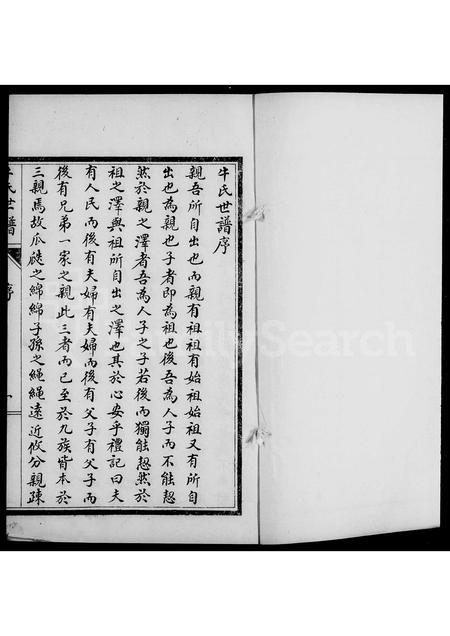 牛氏世譜序
親吾所自出也而親有祖祖有始祖始祖又有所自
出也為親也子者即為祖也後吾為人子而不能恝
然於親之澤者吾為人子之子若後而獨能恝然於
祖之澤與祖所自出之澤也其於心安乎禮記曰夫
有人民而後有夫婦有夫婦而後有父子有父子而
後有兄弟一家之親此三者而已至於九族皆本於
三親焉故瓜瓞之綿綿子孫之繩繩遠近攸分親疎
牛氏世譜
序
FamilySearch